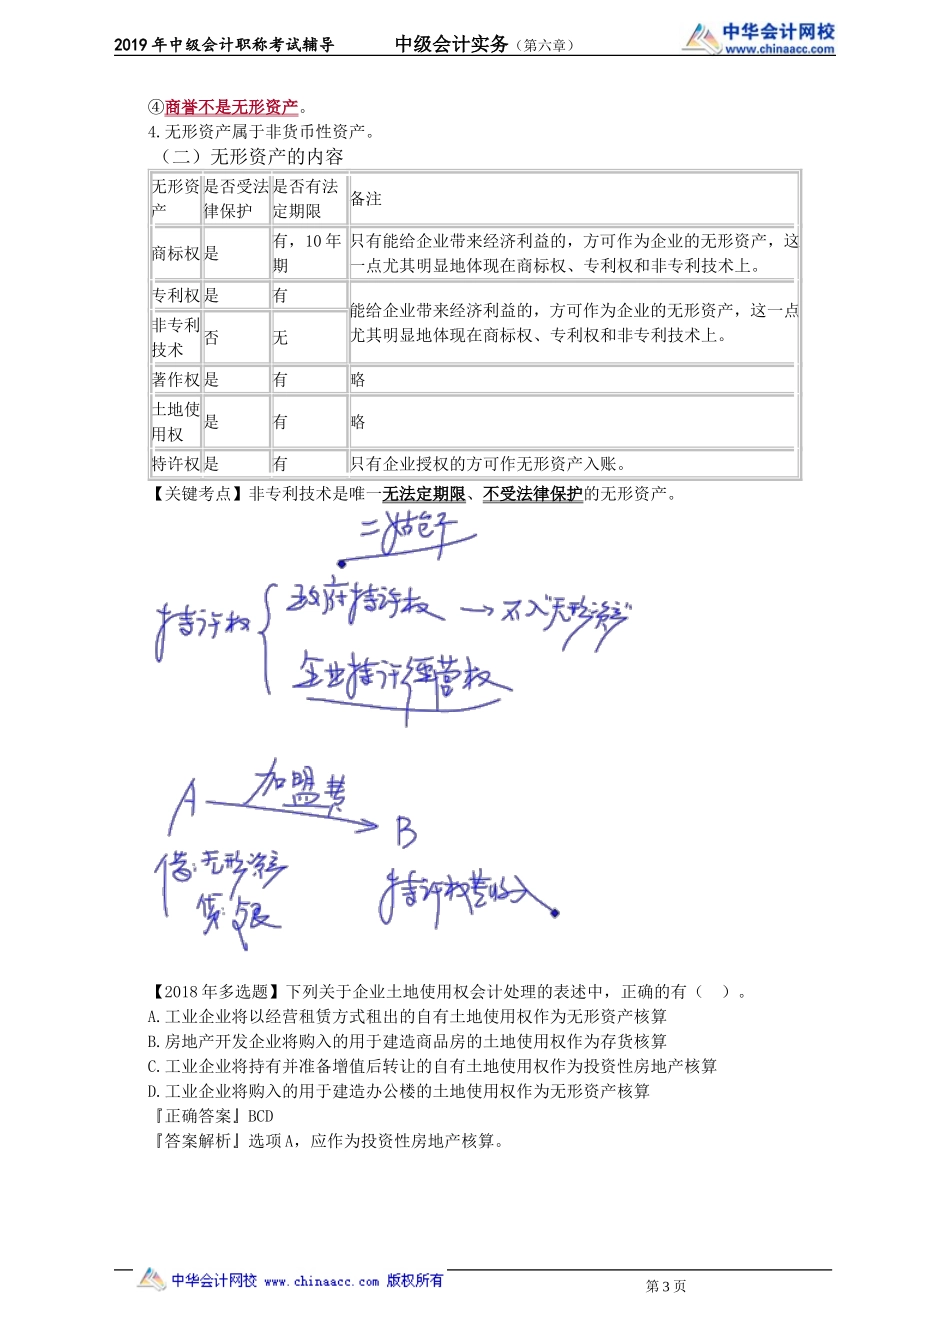 2019年中级会计职称考试辅导 中级会计实务（第六章）
中华会计网校
www.chinaacc.com
④商誉不是无形资产。
4.无形资产属于非货币性资产。
（二）无形资产的内容
无形资产 是否受法律保护 是否有法定期限 备注
商标权 是 有，10年期 只有能给企业带来经济利益的，方可作为企业的无形资产，这一点尤其明显地体现在商标权、专利权和非专利技术上。
专利权 是 有 能给企业带来经济利益的，方可作为企业的无形资产，这一点尤其明显地体现在商标权、专利权和非专利技术上。
非专利技术 否 无
著作权 是 有 略
土地使用权 是 有 略
特许权 是 有 只有企业授权的方可作无形资产入账。
【关键考点】非专利技术是唯一无法定期限、不受法律保护的无形资产。
二姑包子
特许权
政府特许权 → 不入"无形资产"
企业特许经营权
A 加盟费 B
借：无形资产
贷：银
特许权费收入
【2018年多选题】下列关于企业土地使用权会计处理的表述中，正确的有（ ）。
A.工业企业将以经营租赁方式租出的自有土地使用权作为无形资产核算
B.房地产开发企业将购入的用于建造商品房的土地使用权作为存货核算
C.工业企业将持有并准备增值后转让的自有土地使用权作为投资性房地产核算
D.工业企业将购入的用于建造办公楼的土地使用权作为无形资产核算
『正确答案』BCD
『答案解析』选项A，应作为投资性房地产核算。
中华会计网校 www.chinaacc.com 版权所有
第3页